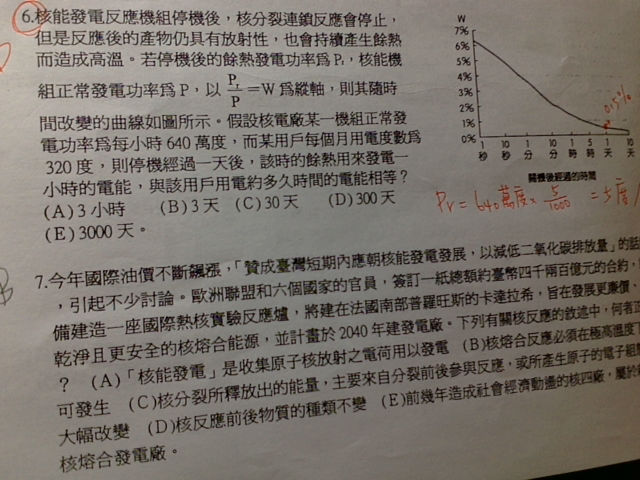 6.核能發電反應機組停機後，核分裂連鎖反應會停止，
但是反應後的產物仍具有放射性，也會持續產生餘熱
而造成高溫。若停機後的餘熱發電功率爲Pᵣ，核能機
組正常發電功率爲P，以 Pᵣ/P =W 爲縱軸，則其隨時
間改變的曲線如圖所示。假設核電廠某一機組正常發
電功率爲每小時 640 萬度，而某用戶每個月用電度數爲
320 度，則停機經過一天後，該時的餘熱用來發電一
小時的電能，與該用戶用電約多久時間的電能相等？
(A)3 小時 (B)3 天 (C)30 天 (D)300 天
(E)3000 天。
W
7%
6%
5%
4%
3%
2%
1%
0%
1秒 10秒 1分 10分 1時 5時 1天 10天
關機後經過的時間
0.5%
Pr = 640萬度 × 5/1000 =
7.今年國際油價不斷飆漲，「贊成臺灣短期內應朝核能發電發展，以減低二氧化碳排放量」的話
，引起不少討論。歐洲聯盟和六個國家的官員，簽訂一紙總額約臺幣四千兩百億元的合約，
備建造一座國際熱核實驗反應爐，將建在法國南部普羅旺斯的卡達拉希，旨在發展更廉價、
乾淨且更安全的核熔合能源，並計畫於 2040 年建發電廠。下列有關核反應的敘述中，何者正
？ (A)「核能發電」是收集原子核放射之電荷用以發電 (B)核熔合反應必須在極高溫度下
可發生 (C)核分裂所釋放出的能量，主要來自分裂前後參與反應，或所產生原子的電子組
大幅改變 (D)核反應前後物質的種類不變 (E)前幾年造成社會經濟動盪的核四廠，屬於
核熔合發電廠。